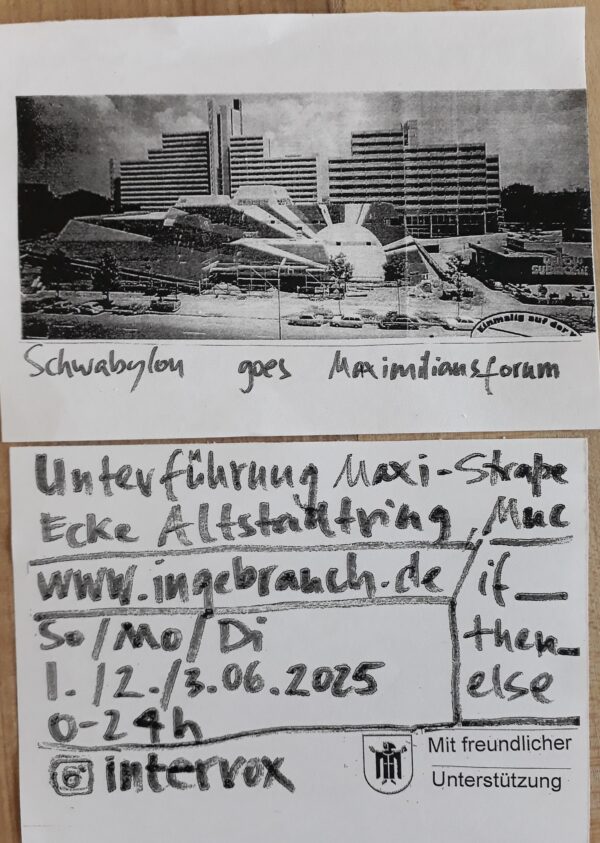 Einmalig auf der
Schwabylon goes Maximiliansforum
Unterführung Maxi-Straße
Ecke Altstadtring, Muc
www.ingebrauch.de
if_
then_
else
So/Mo/Di
1./2./3.06.2025
0-24h
intervox
Mit freundlicher
Unterstützung